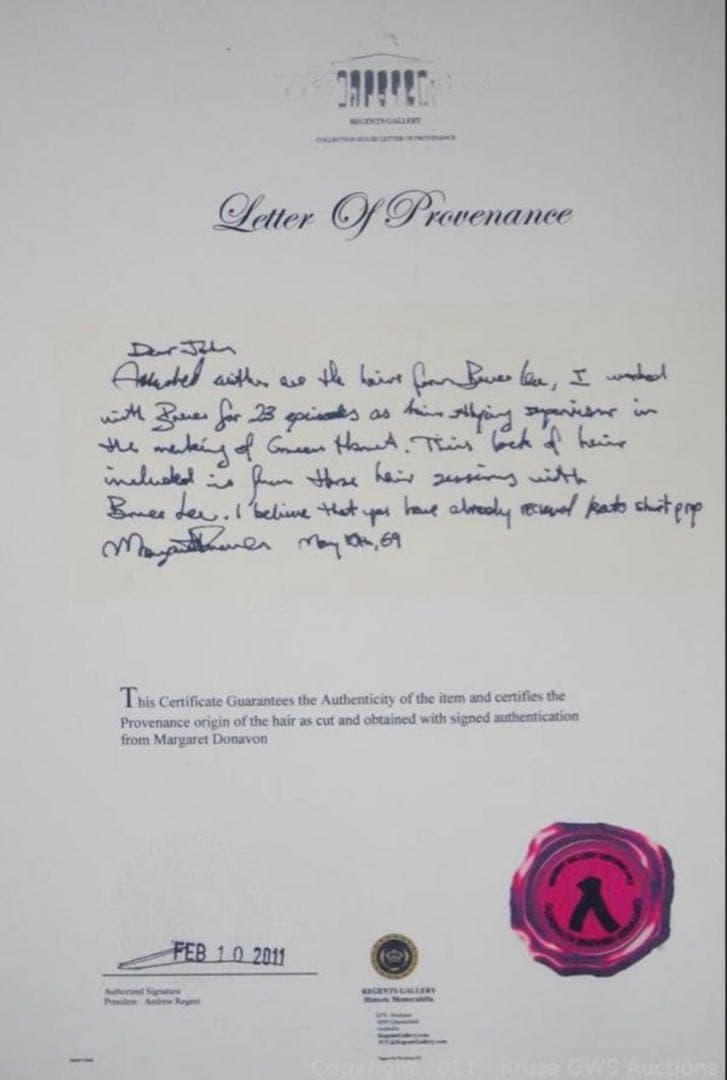 REGENTS GALLERY
COLLECTION HOUSE LETTER OF PROVENANCE
Letter Of Provenance
Dear John
Attached withn are the hairs from Bruce Lee, I worked
with Bruce for 23 episodes as hair styling supervisor in
the making of Green Hornet. This lock of hair
included is from those hair sessions with
Bruce Lee. I believe that you have already received kato shirt prop
May 10th, 69
This Certificate Guarantees the Authenticity of the item and certifies the
Provenance origin of the hair as cut and obtained with signed authentication
from Margaret Donavon
FEB 10 2011
Authorized Signature
President Andrew Regent
REGENTS GALLERY
Historic Memorabilia
Copyright 2021 - Kruse GWS Auctions